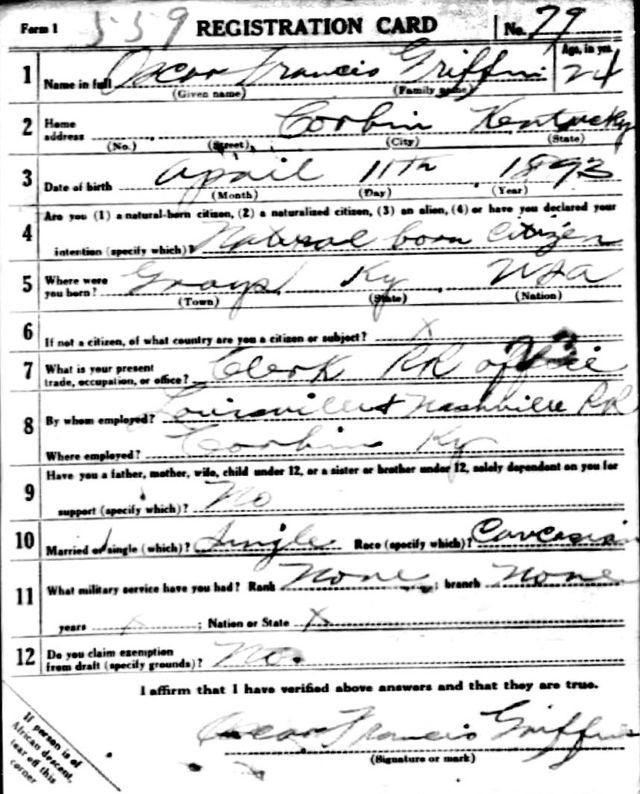 Form 1 559 REGISTRATION CARD No. 79
1 Name in full Oscar Francis Griffin Age, in yrs. 24
(Given name) (Family name)
2 Home address Corbin Kentucky
(No.) (Street) (City) (State)
3 Date of birth April 11th 1893
(Month) (Day) (Year)
Are you (1) a natural-born citizen, (2) a naturalized citizen, (3) an alien, (4) or have you declared your
4 intention (specify which)? Natural born Citizen
5 Where were you born? Grays Ky USA
(Town) (State) (Nation)
6 If not a citizen, of what country are you a citizen or subject? X
7 What is your present trade, occupation, or office? Clerk RR office
8 By whom employed? Louisville & Nashville RR
Where employed? Corbin Ky
9 Have you a father, mother, wife, child under 12, or a sister or brother under 12, solely dependent on you for
support (specify which)? No
10 Married or single (which)? Single Race (specify which)? Caucasian
11 What military service have you had? Rank None ; branch None
years X ; Nation or State X
12 Do you claim exemption from draft (specify grounds)? No.
I affirm that I have verified above answers and that they are true.
Oscar Francis Griffin
(Signature or mark)
If person is of
African descent,
tear off this
corner